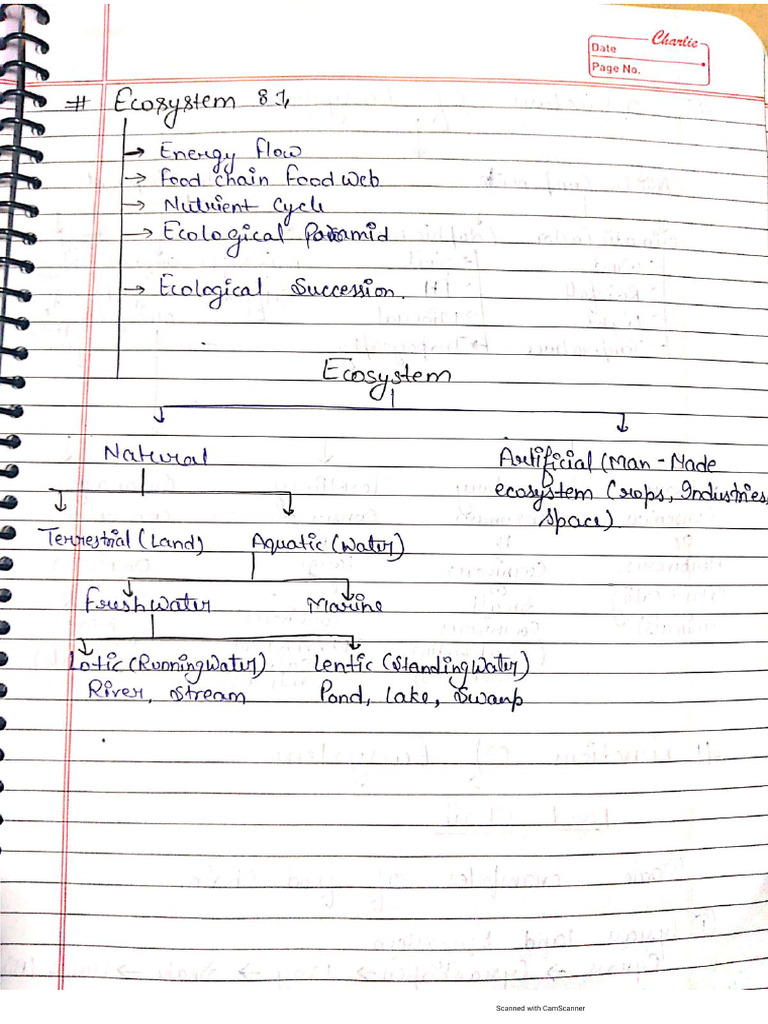 Charlie
Date
Page No.
# Ecosystem
→ Energy flow
→ Food chain Food web
→ Nutrient Cycle
→ Ecological Pairamid
→ Ecological Succession.
Ecosystem
Natural
Artificial (Man-Made
ecosystem Crops, Industries,
Space).
Terrestrial (Land) Aquatic (Water)
Freshwater Marine
Lotic (Running Water) Lentic (Standing Water)
River, Stream Pond, Lake, Swanp
Scanned with CamScanner